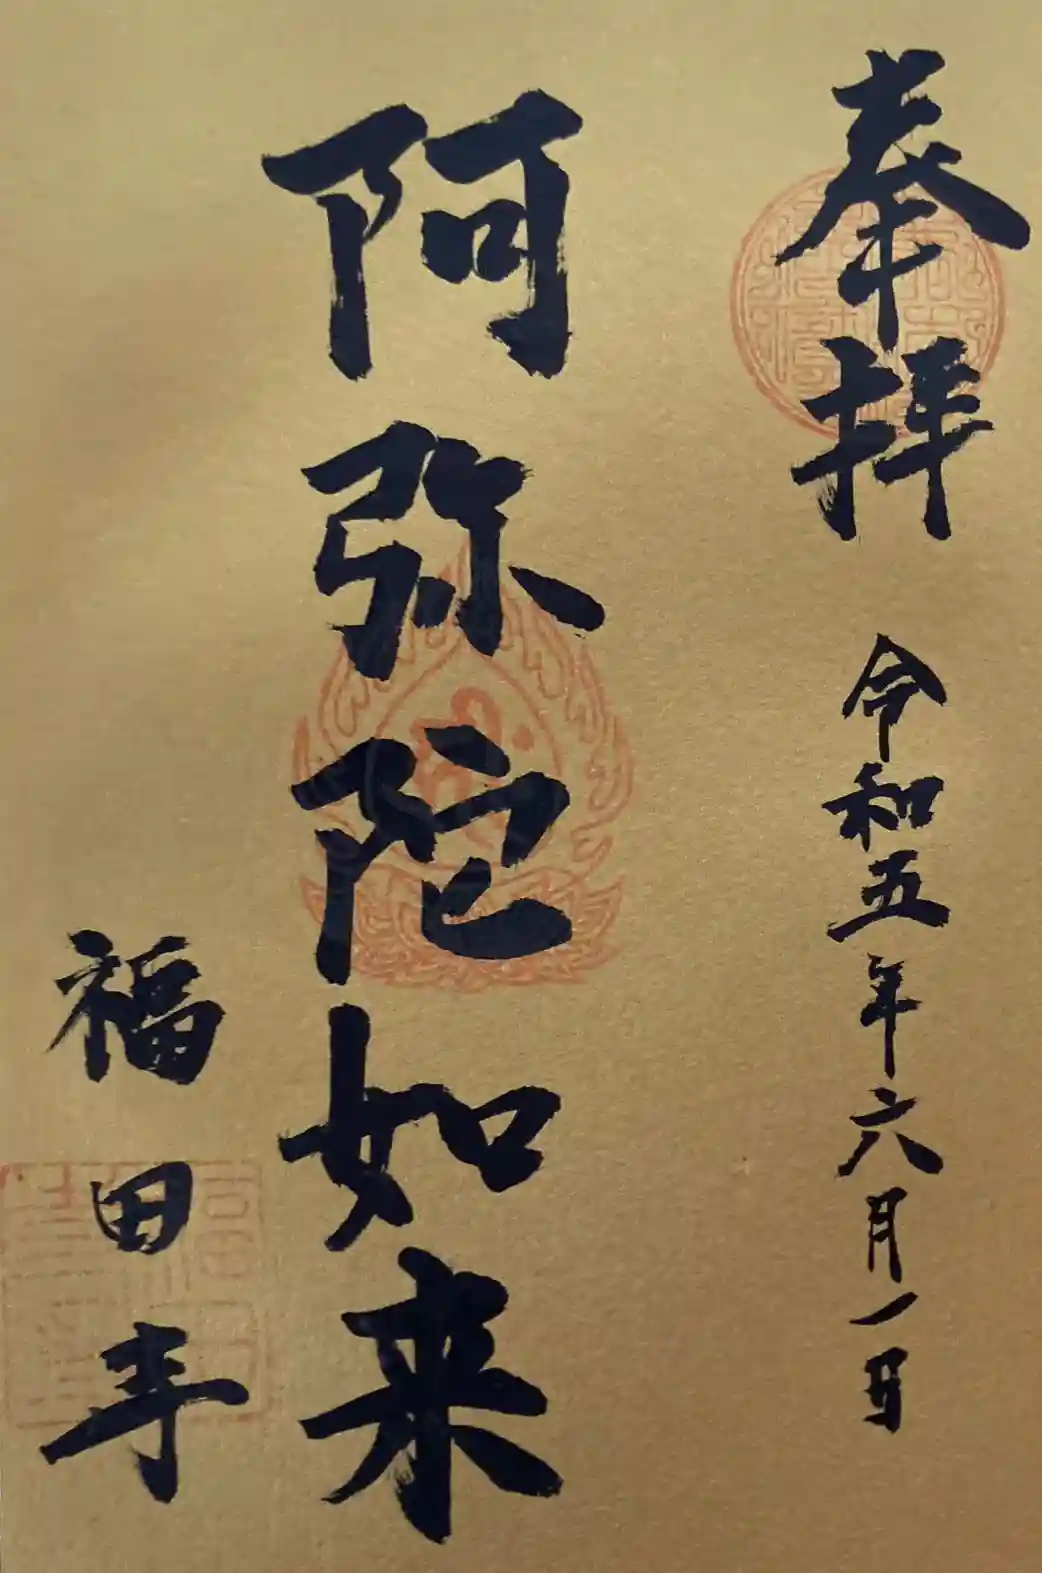 奉拝
令和五年六月一日
阿弥陀如来
福田寺